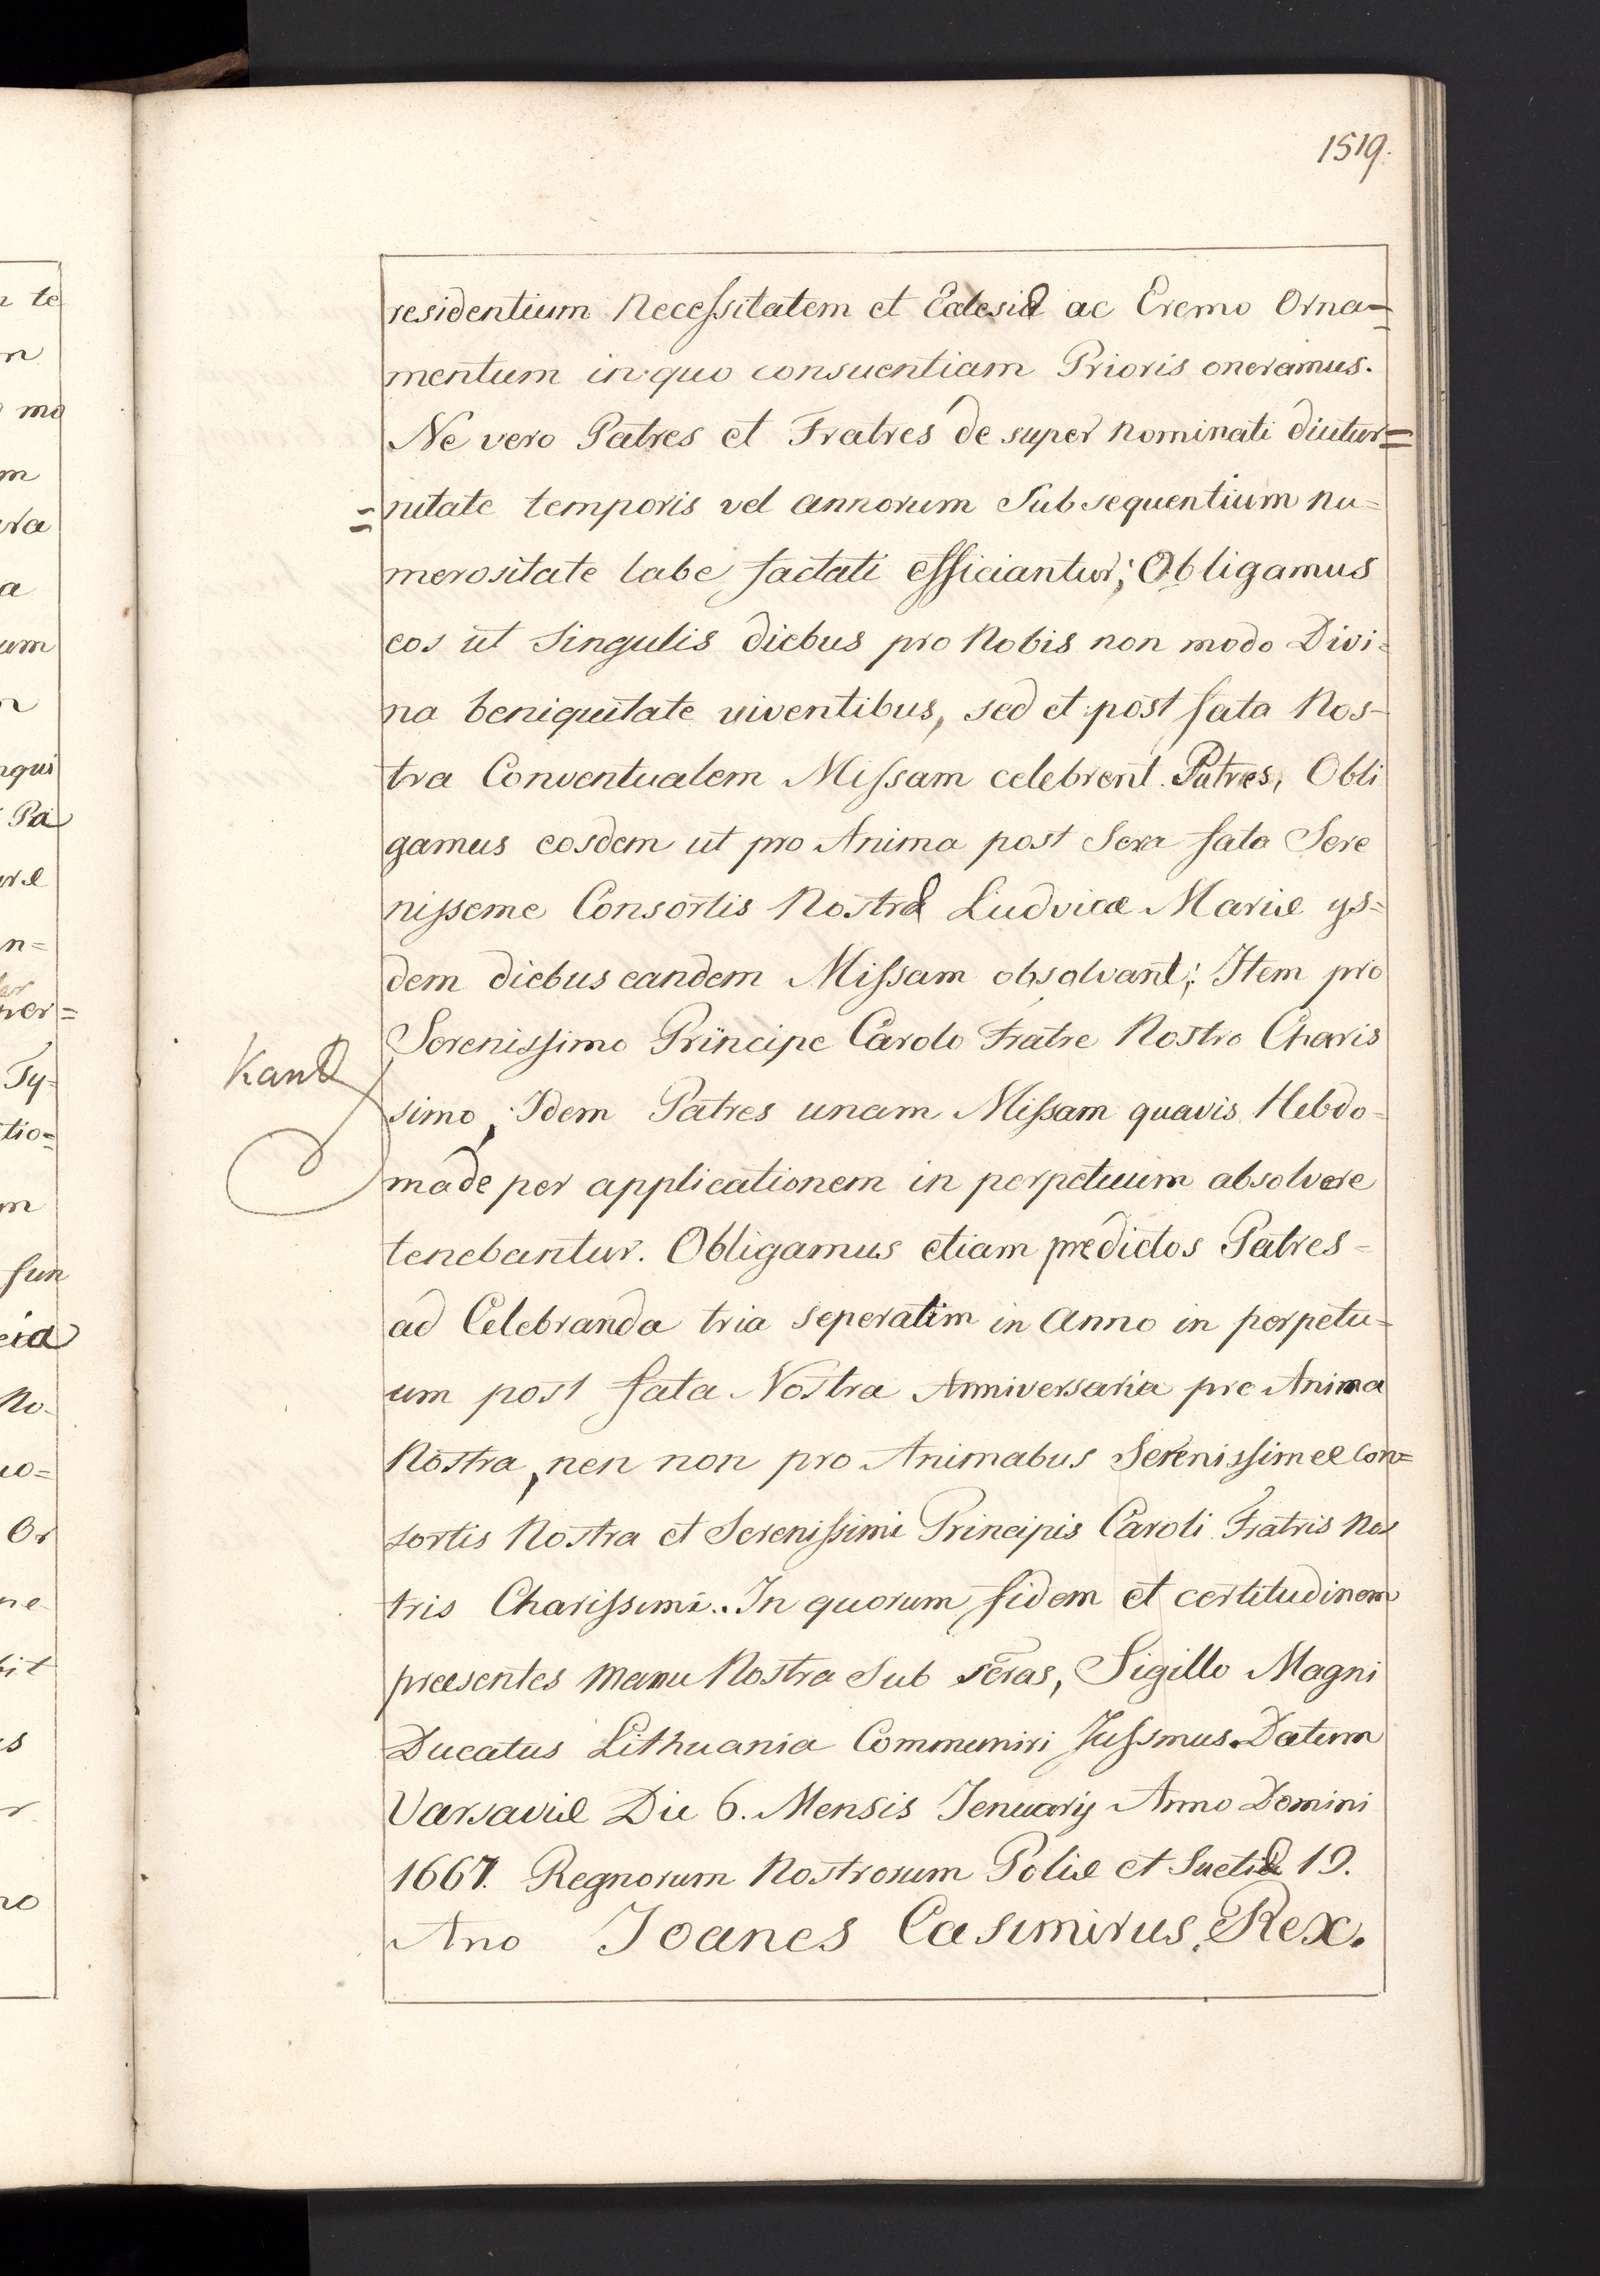 1519.
residentium Necessitatem et Eclesiæ ac Eremo Orna=
mentum in quo consuentiam Prioris oneramus.
Ne vero Patres et Fratres de super Nominati diutur=
=nitate temporis vel annorum Subsequentium nu=
merositate labe factati efficiantur; Obligamus
eos ut Singulis diebus pro Nobis non modo Divi=
na beniquitate viventibus, sed et post fata Nos-
tra Conventualem Missam celebrent Patres, Obli
gamus eosdem ut pro Anima post Sera fata Sere
nisseme Consortis Nostræ Ludvicæ Mariæ ys=
dem diebus eandem Missam obsolvant; Item pro
Serenissimo Principe Carolo Fratre Nostro Charis
Kant
simo, Idem Patres unam Missam quavis Hebdo-
made per applicationem in perpetuum absolvere
tenebantur. Obligamus etiam predictos Patres=
ad Celebranda tria seperatim in Anno in perpetu=
um post fata Nostra Anniversaria pro Anima
Nostra, nen non pro Animabus Serenissimæ Con=
sortis Nostra et Serenissimi Principis Caroli Fratris Nos
tris Charissimi. In quorum fidem et certitudinem
præsentes Manu Nostra Sub scras, Sigillo Magni
Ducatus Lithuania Communiri Jussmus. Datum
Varsaviæ Die 6. Mensis Jenuarij Anno Domini
1667. Regnorum Nostrorum Poliæ et Suetiæ 19.
Ano Joanes Casimirus Rex.
n te
n
mo
m
ura
a
um
n
nqui
Pa
uræ
n=
ver=
Ty=
tio=
m
fun
No-
uo=
Or
ne
bit
s
r
no